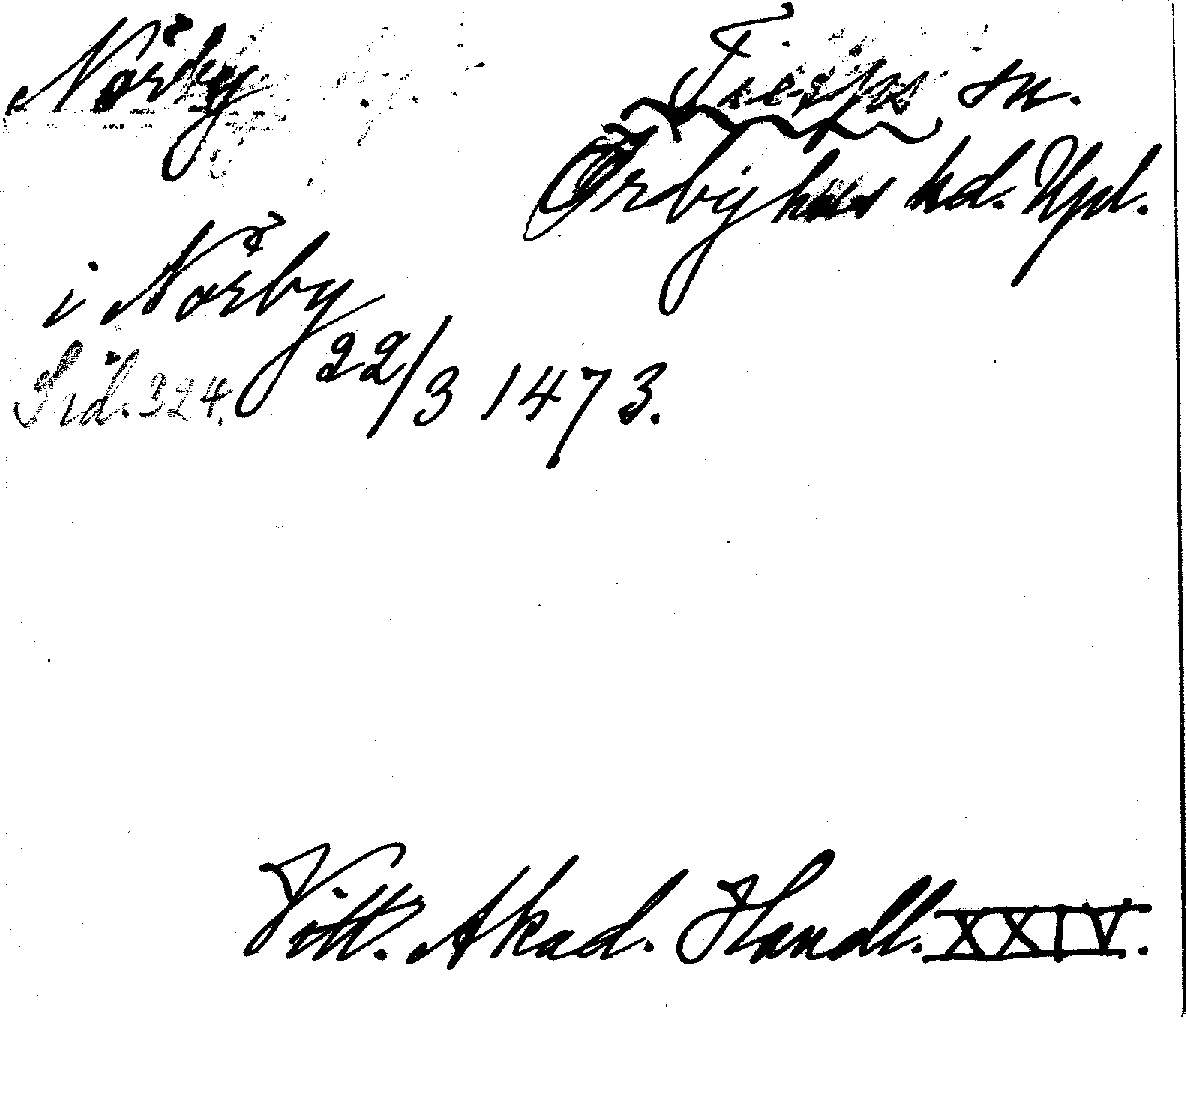 Nörby
Tierps sn.
Örbyhus hd. Upl.
i Nörby
22/3 1473.
Sid. 324.
Vitt. Akad. Handl. XXIV.